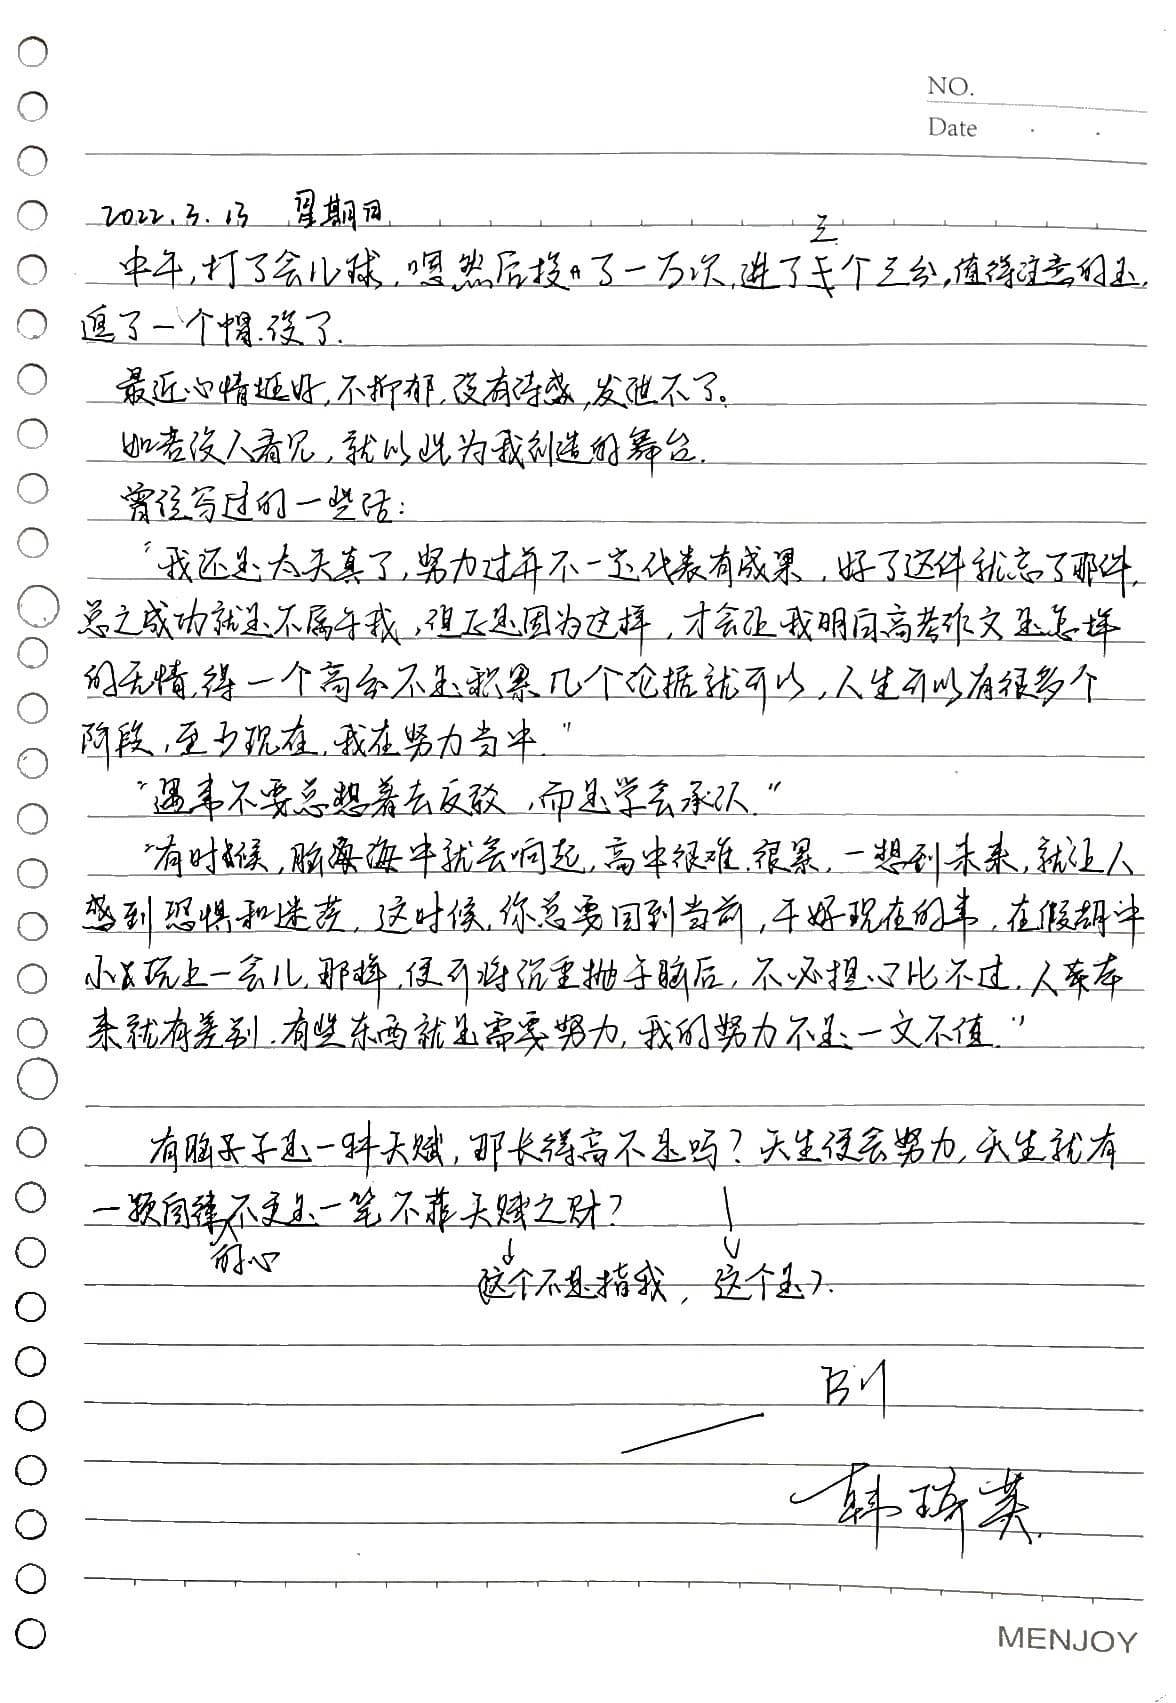 NO.
Date
2022.3.13 星期日
三
中午,打了会儿球,嗯然后投了一万次,进了个三分,值得注意的是,
逼了一个帽.没了.
最近心情挺好,不抑郁,没有诗感,发泄不了。
如若没人看见,就以此为我创造的舞台.
曾经写过的一些话:
“我还是太天真了,努力过并不一定代表有成果,好了这件就忘了那件,
总之成功就是不属于我,但正是因为这样,才会让我明白高考作文是怎样
的无情,得一个高分不是积累几个论据就可以,人生可以有很多个
阶段,至少现在,我在努力当中.”
“遇事不要总想着去反驳,而是学会承认.”
“有时候,脑海中就会响起,高中很难.很累,一想到未来,就让人
感到恐惧和迷茫,这时候,你总要回到当前,干好现在的事,在假期中
小玩上一会儿,那样,便可将沉重抛于脑后,不必担心比不过,人本
来就有差别.有些东西就是需要努力,我的努力不是一文不值.”
有脑子是一种天赋,那长得高不是吗?天生便会努力,天生就有
一颗自律不更是一笔不菲天赋之财?
的心
这个不是指我,这个是?
别
韩琦英
MENJOY